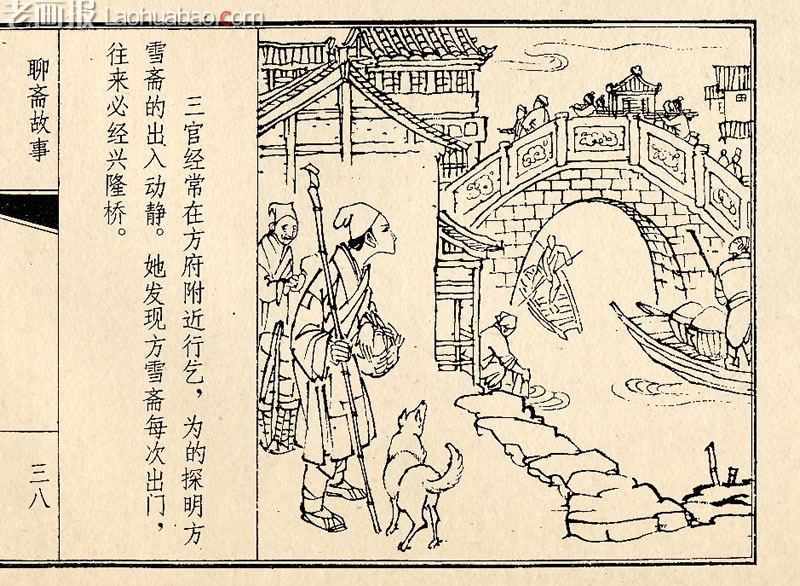 老画报 Laohuabao.com
三官经常在方府附近行乞，为的探明方
雪斋的出入动静。她发现方雪斋每次出门，
往来必经兴隆桥。
聊斋故事
三八